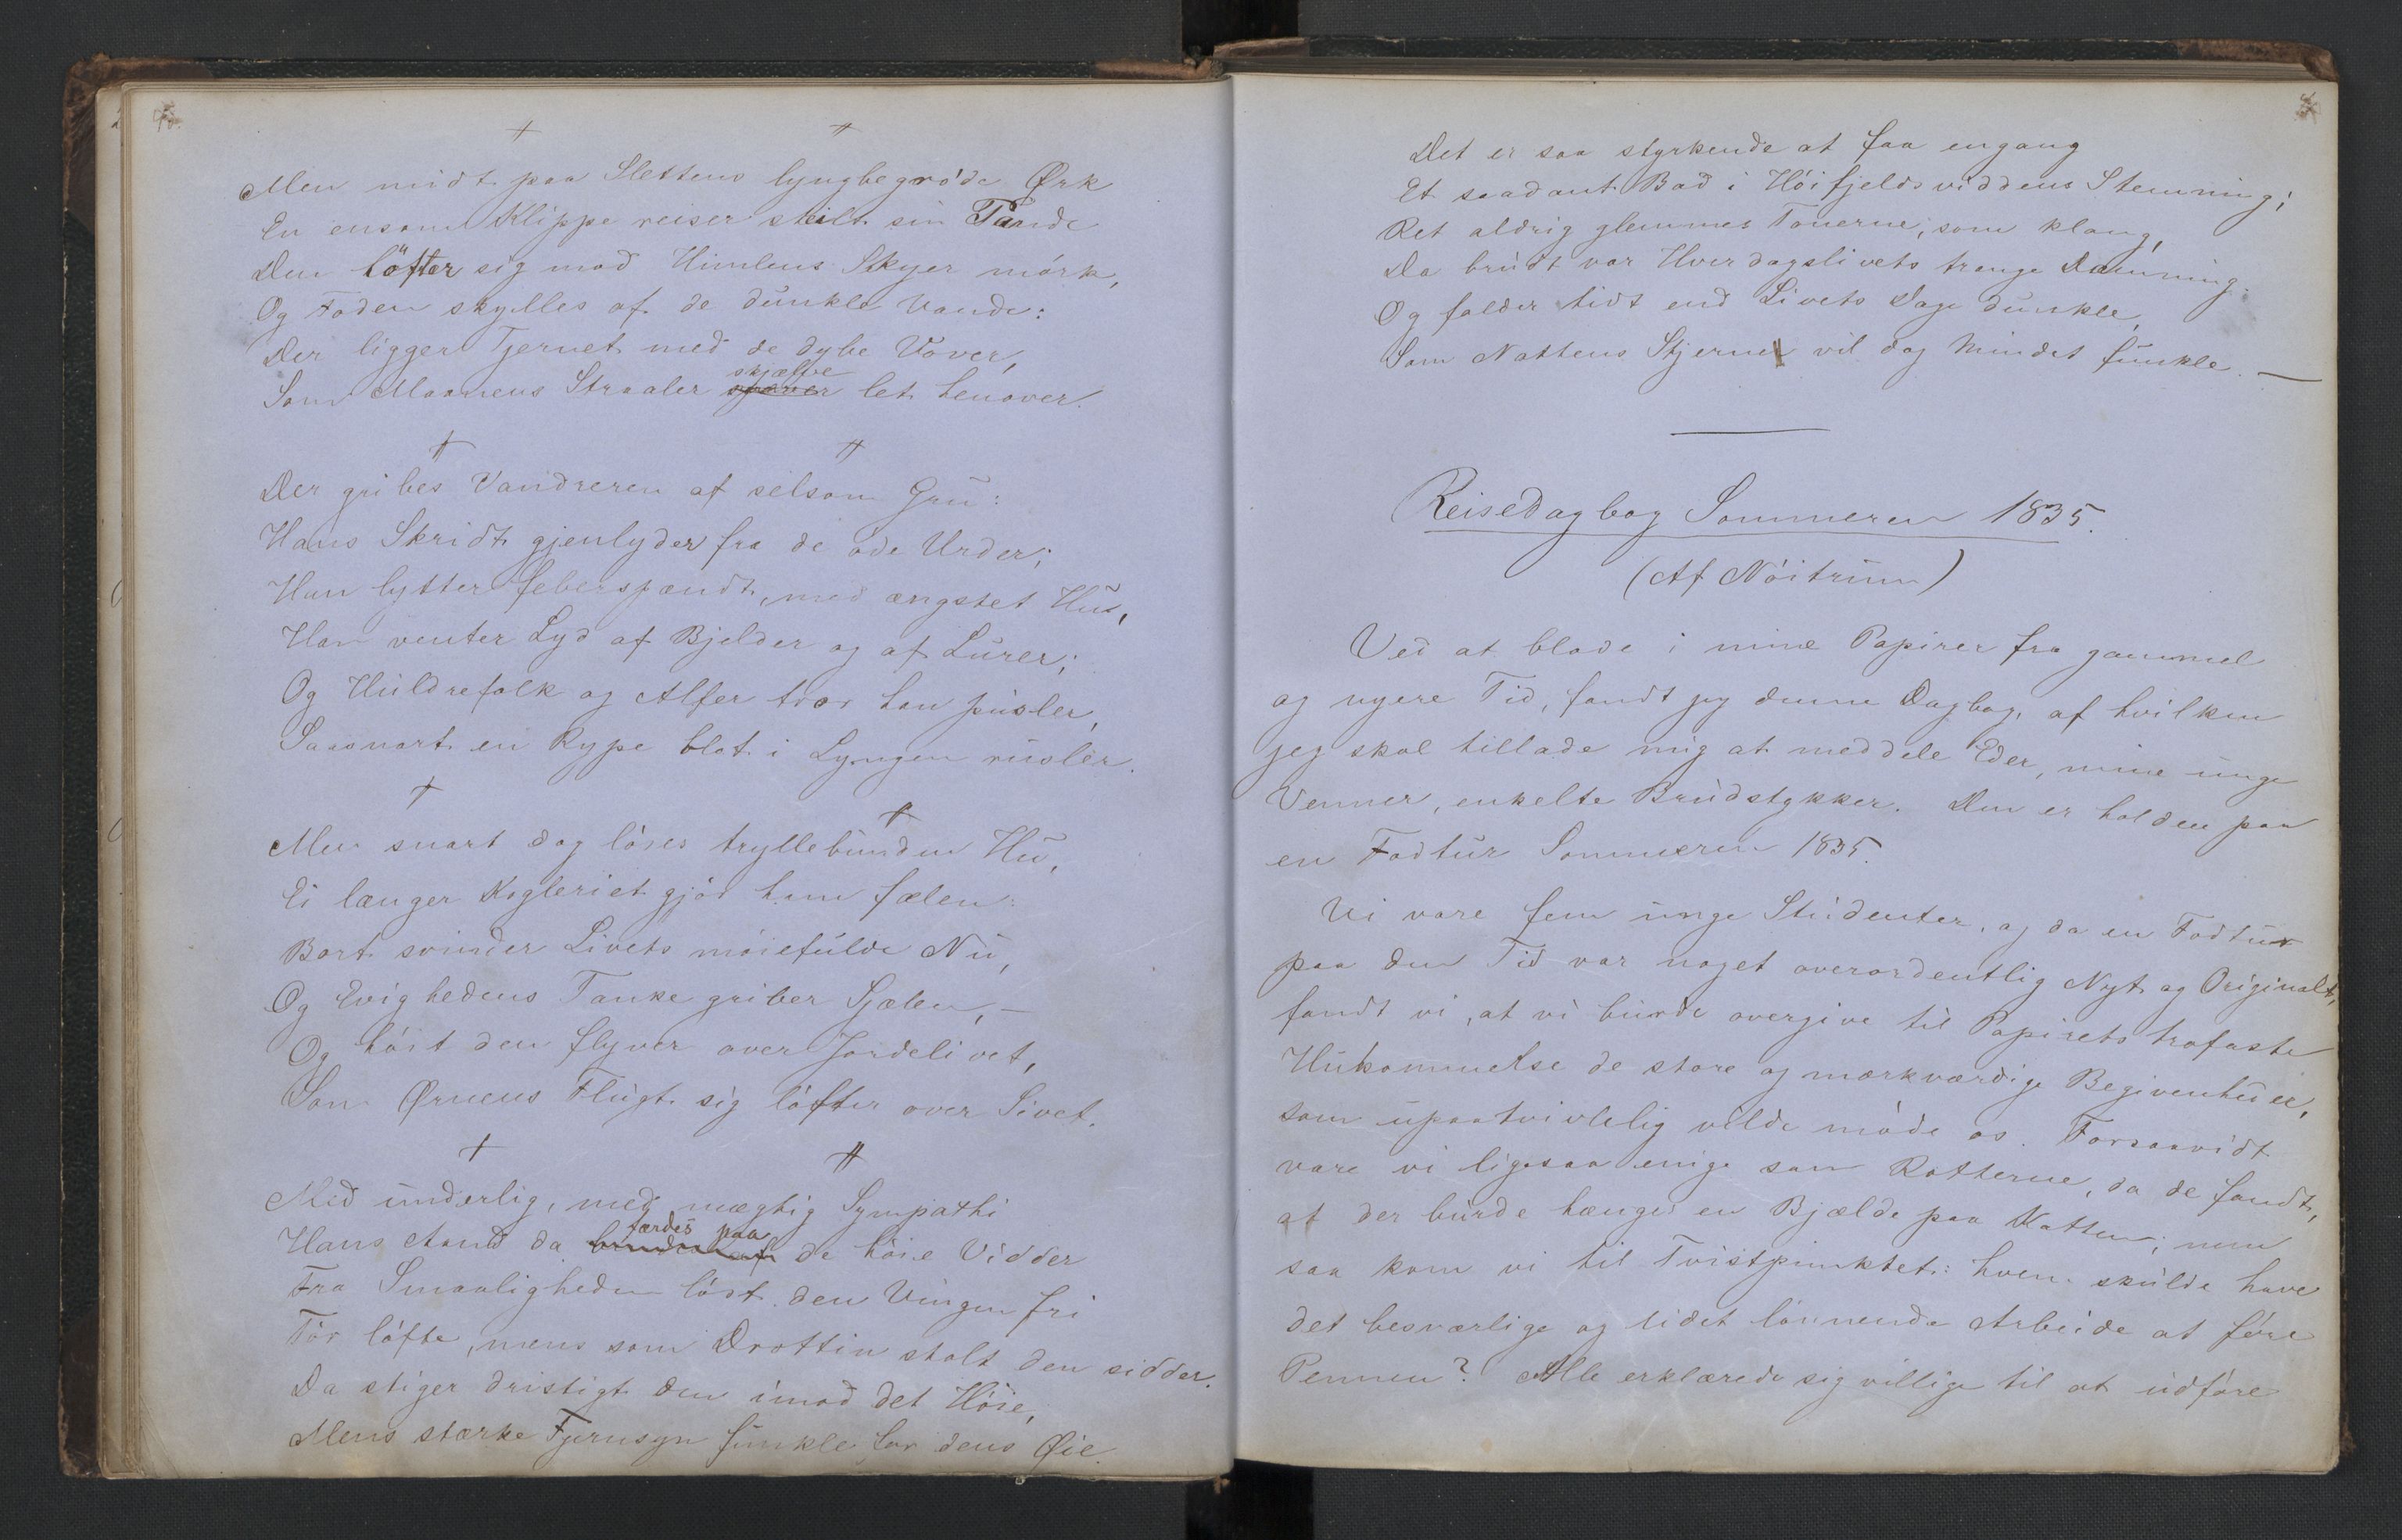 Men midt paa Slettens lyngbegróde Ørk
En ensom Klippe reiser steilt sin Pande
Den löfter sig mod Himlens Skyer mórk,
Og Foden skylles af de dunkle Vande:
Der ligger Tjernet med de dybe Vover,
skjælve
Som Maanens Straaler svæver let henover.
Der gribes Vandreren af selsom Gru:
Hans Skridt gjenlyder fra de óde Urder;
Han lytter feberspændt, med ængstet Hu,
Han venter Lyd af Bjelder og af Lurer;
Og Huldrefolk og Alfer tror han pusler,
Saasnart en Rype blot i Lyngen rusler.
Men snart dog lóses tryllebunden Hu,
Ei længer Kogleriet gjór ham fælen:
Bort svinder Livets móiefulde Nu,
Og Evighedens Tanke griber Sjælen, –
Og hóit den flyver over Jordelivet,
Som Ørnens Flugt sig lófter over Sivet.
Med underlig, med mægtig Sympathi
færdes paa
Hans Aand da de hóie Vidder
Fra Smaaligheden lóst den Vingen fri
Tór lófte, mens som Drottin stolt den sidder.
Da stiger dristigt den imod det Hóie,
Mens stærke Fjernsyn funkle for dens Øie.
Det er saa styrkende at faa engang
Et saadant Bad i Hóifjeldsviddens Stemning;
Ret aldrig glemmes Tonerne, som klang,
Da brudt var Hverdagslivets trange Dæmning.
Og falder tidt end Livets Dage dunkle,
Som Nattens Stjerne vil dog Mindet funkle. —
Reisedagbog Sommeren 1835.
(Af Nóitrum)
Ved at blade i mine Papirer fra gammel
og nyere Tid, fandt jeg denne Dagbog, af hvilken
jeg skal tillade mig at meddele Eder, mine unge
Venner, enkelte Brudstykker. Den er holden paa
en Fodtur Sommeren 1835.
Vi vare fem unge Studenter, og da en Fodtur
paa den Tid var noget overordentlig Nyt og Originalt,
fandt vi, at vi burde overgive til Papirets trofaste
Hukommelse de store og mærkværdige Begivenheder,
som upaatvivlelig vilde móde os. Forsaavidt
vare vi ligesaa enige som Rotterne, da de fandt,
at der burde hænges en Bjælde paa Katten; men
saa kom vi til Tvistpunktet: hvem skulde have
det besværlige og lidet lónnende Arbeide at fóre
Pennen? Alle erklærede sig villige til at udfóre